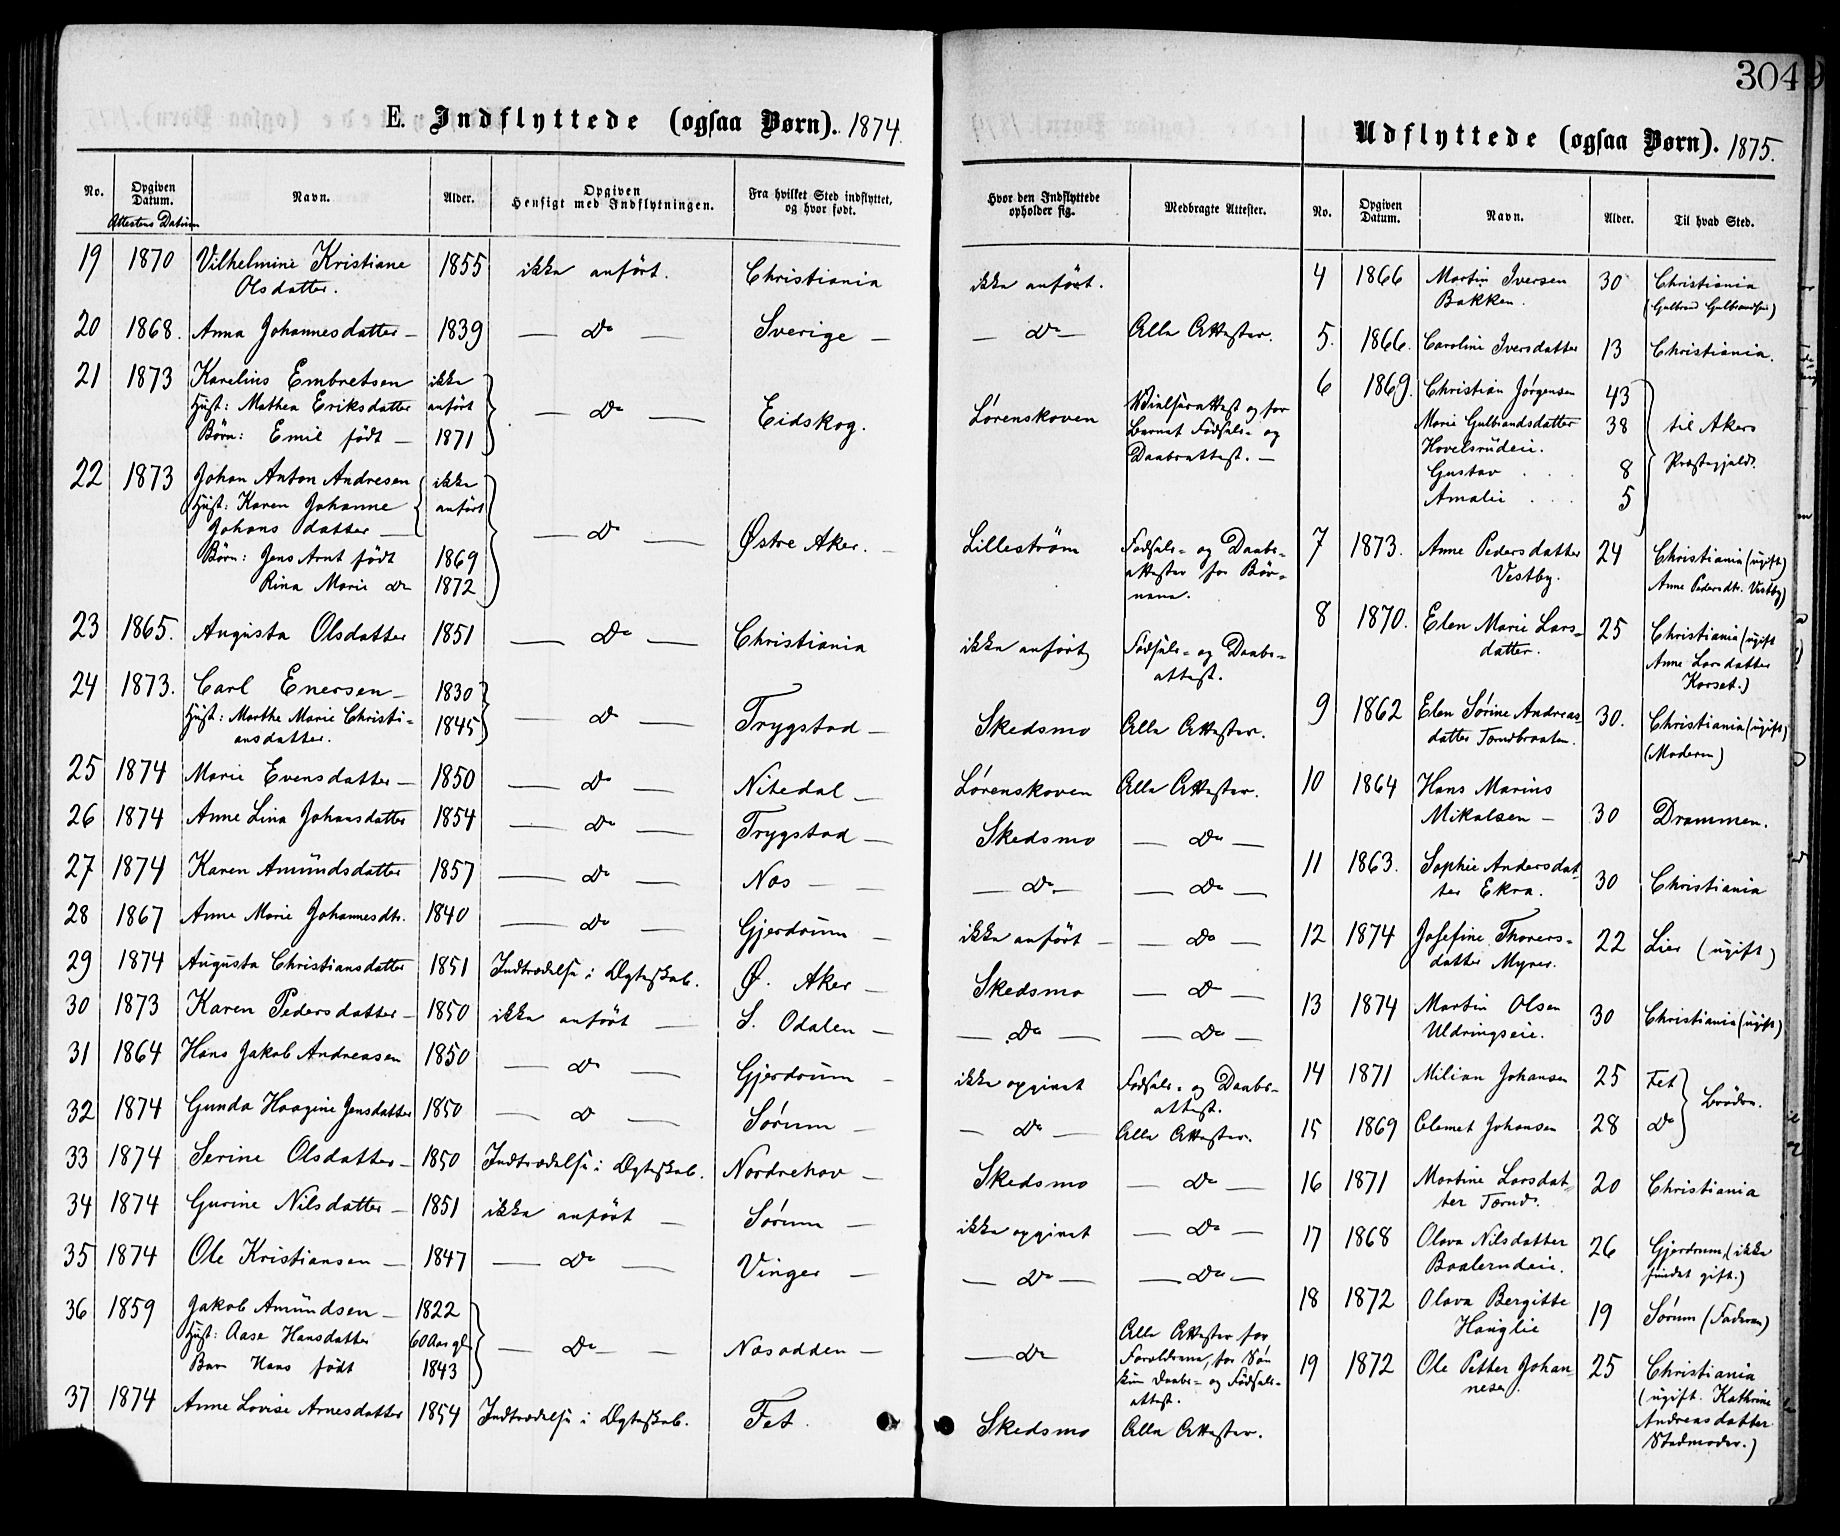 304
E. Indflyttede (ogsaa Børn). 1874.
No.
Opgiven Datum.
Attestens Datum
Navn.
Alder.
Opgiven Hensigt med Indflytningen.
Fra hvilket Sted indflyttet, og hvor født.
Hvor den Indflyttede opholder sig.
Medbragte Attester.
19 1870 Vilhelmine Kristiane 1855 ikke anført. Christiania ikke anført.
Olsdatter.
20 1868. Anna Johannesdatter – 1839 — Do — Sverige – — Do — Alle Attester.
21 1873 Karelius Embretsen ikke
Hust: Mathea Eriksdatter anført — Do — Eidskog. Lørenskoven Vielsesattest og for
Børn: Emil født – 1871 Barnet Fødsels- og
Daabsattest. –
22 1873 Johan Anton Andresen ikke
Hust: Karen Johanne anført
Johans datter — — Do — Østre Aker. – Lillestrøm Fødsels- og Daabs-
Børn: Jens Arnt født 1869 attester for Bør-
Rina Marie do 1872 nene.
23 1865. Augusta Olsdatter 1851 — Do — Christiania ikke anført Fødsels- og Daabs-
attest.
24 1873. Carl Enersen – 1830
Hust: Marthe Marie Christi- 1845 — Do — Trygstad – Skedsmo Alle Attester.
ansdatter.
25 1874 Marie Evensdatter – 1850 — Do — Nitedal – Lørenskoven Alle Attester.
26 1874 Anne Lina Johansdatter 1854 — Do — Trygstad – Skedsmo — Do —
27 1874 Karen Amundsdatter 1857 — Do — Nes – – — Do — — Do —
28 1867 Anne Marie Johannesdtr. 1840 — Do — Gjerdrum – ikke anført – — Do —
29 1874 Augusta Christiansdatter 1851 Indtrædelse i Ægteskab. Ø. Aker – Skedsmo — Do —
30 1873 Karen Pedersdatter – 1850 ikke anført — S. Odalen – — Do — — Do —
31 1864 Hans Jakob Andreasen 1850 — Do — Gjerdrum – ikke opgivet Fødsels- og Daabs-
attest.
32 1874 Gunda Haagine Jensdatter 1850 — Do — Sørum – — Do — Alle Attester.
33 1874 Serine Olsdatter – 1850 Indtrædelse i Ægteskab. Nordrehov – Skedsmo — Do —
34 1874 Gurine Nilsdatter – 1851 ikke anført — Sørum – ikke opgivet — Do —
35 1874 Ole Kristiansen – 1847 — Do — Vinger – — Do — — Do —
36 1859 Jakob Amundsen – 1822
Hust: Aase Hansdatter 60 Aar gl. — Do — Nesodden – — Do — Alle Attester for
Barn Hans født 1843 Forældrene, for Søn
kun Daabs- og Fødsels-
attest.
37 1874 Anne Lovise Arnesdatter 1854 Indtrædelse i Ægteskab. Fet. Skedsmo Alle Attester.
Udflyttede (ogsaa Børn). 1875.
No.
Opgiven Datum.
Navn.
Alder.
Til hvad Sted.
4 1866 Martin Iversen 30 Christiania
Bakken. (Gulbrand Gulbrandsen)
5. 1866. Caroline Iversdatter 13 Christiania.
6 1869. Christian Jørgensen 43
Marie Gulbrandsdatter 38 til Akers
Hovelsrudeie. Præstegjæld.
Gustav . . . 8
Amalie . . . 5
7 1873. Anne Pedersdatter 24 Christiania (ugift)
Vestby. Anne Pedersdtr. Vestby)
8 1870. Elen Marie Lars- 25 Christiania (ugift
datter. Anne Larsdatter
Korset.)
9 1862 Elen Sørine Andreas- 30. Christiania (ugift)
datter Tærudbraaten. (Moderen)
10 1864 Hans Marius
Mikalsen – 30 Drammen.
11 1863. Sophie Andersdat-
ter Ekra. 30 Christiania
12 1874 Josefine Thorers- 22 Lier (ugift)
datter Myrer.
13 1874 Martin Olsen 30 Christiania (ugift)
Uldringseie.
14 1871 Milian Johansen 25 Fet
Brødre.
15 1869 Clemet Johansen 28 Do
16 1871 Martine Larsdat- 20 Christiania
ter Tærud.
17 1868 Olava Nilsdatter 26 Gjerdrum, (ikke
Baalerudeie. fundet gift.)
18 1872 Olava Bergitte 19 Sørum (Faderen)
Hauglie
19 1872 Ole Petter Johan- 25 Christiania
nesen. (ugift. Kathrine
Andreasdatter
Stedmoder.)